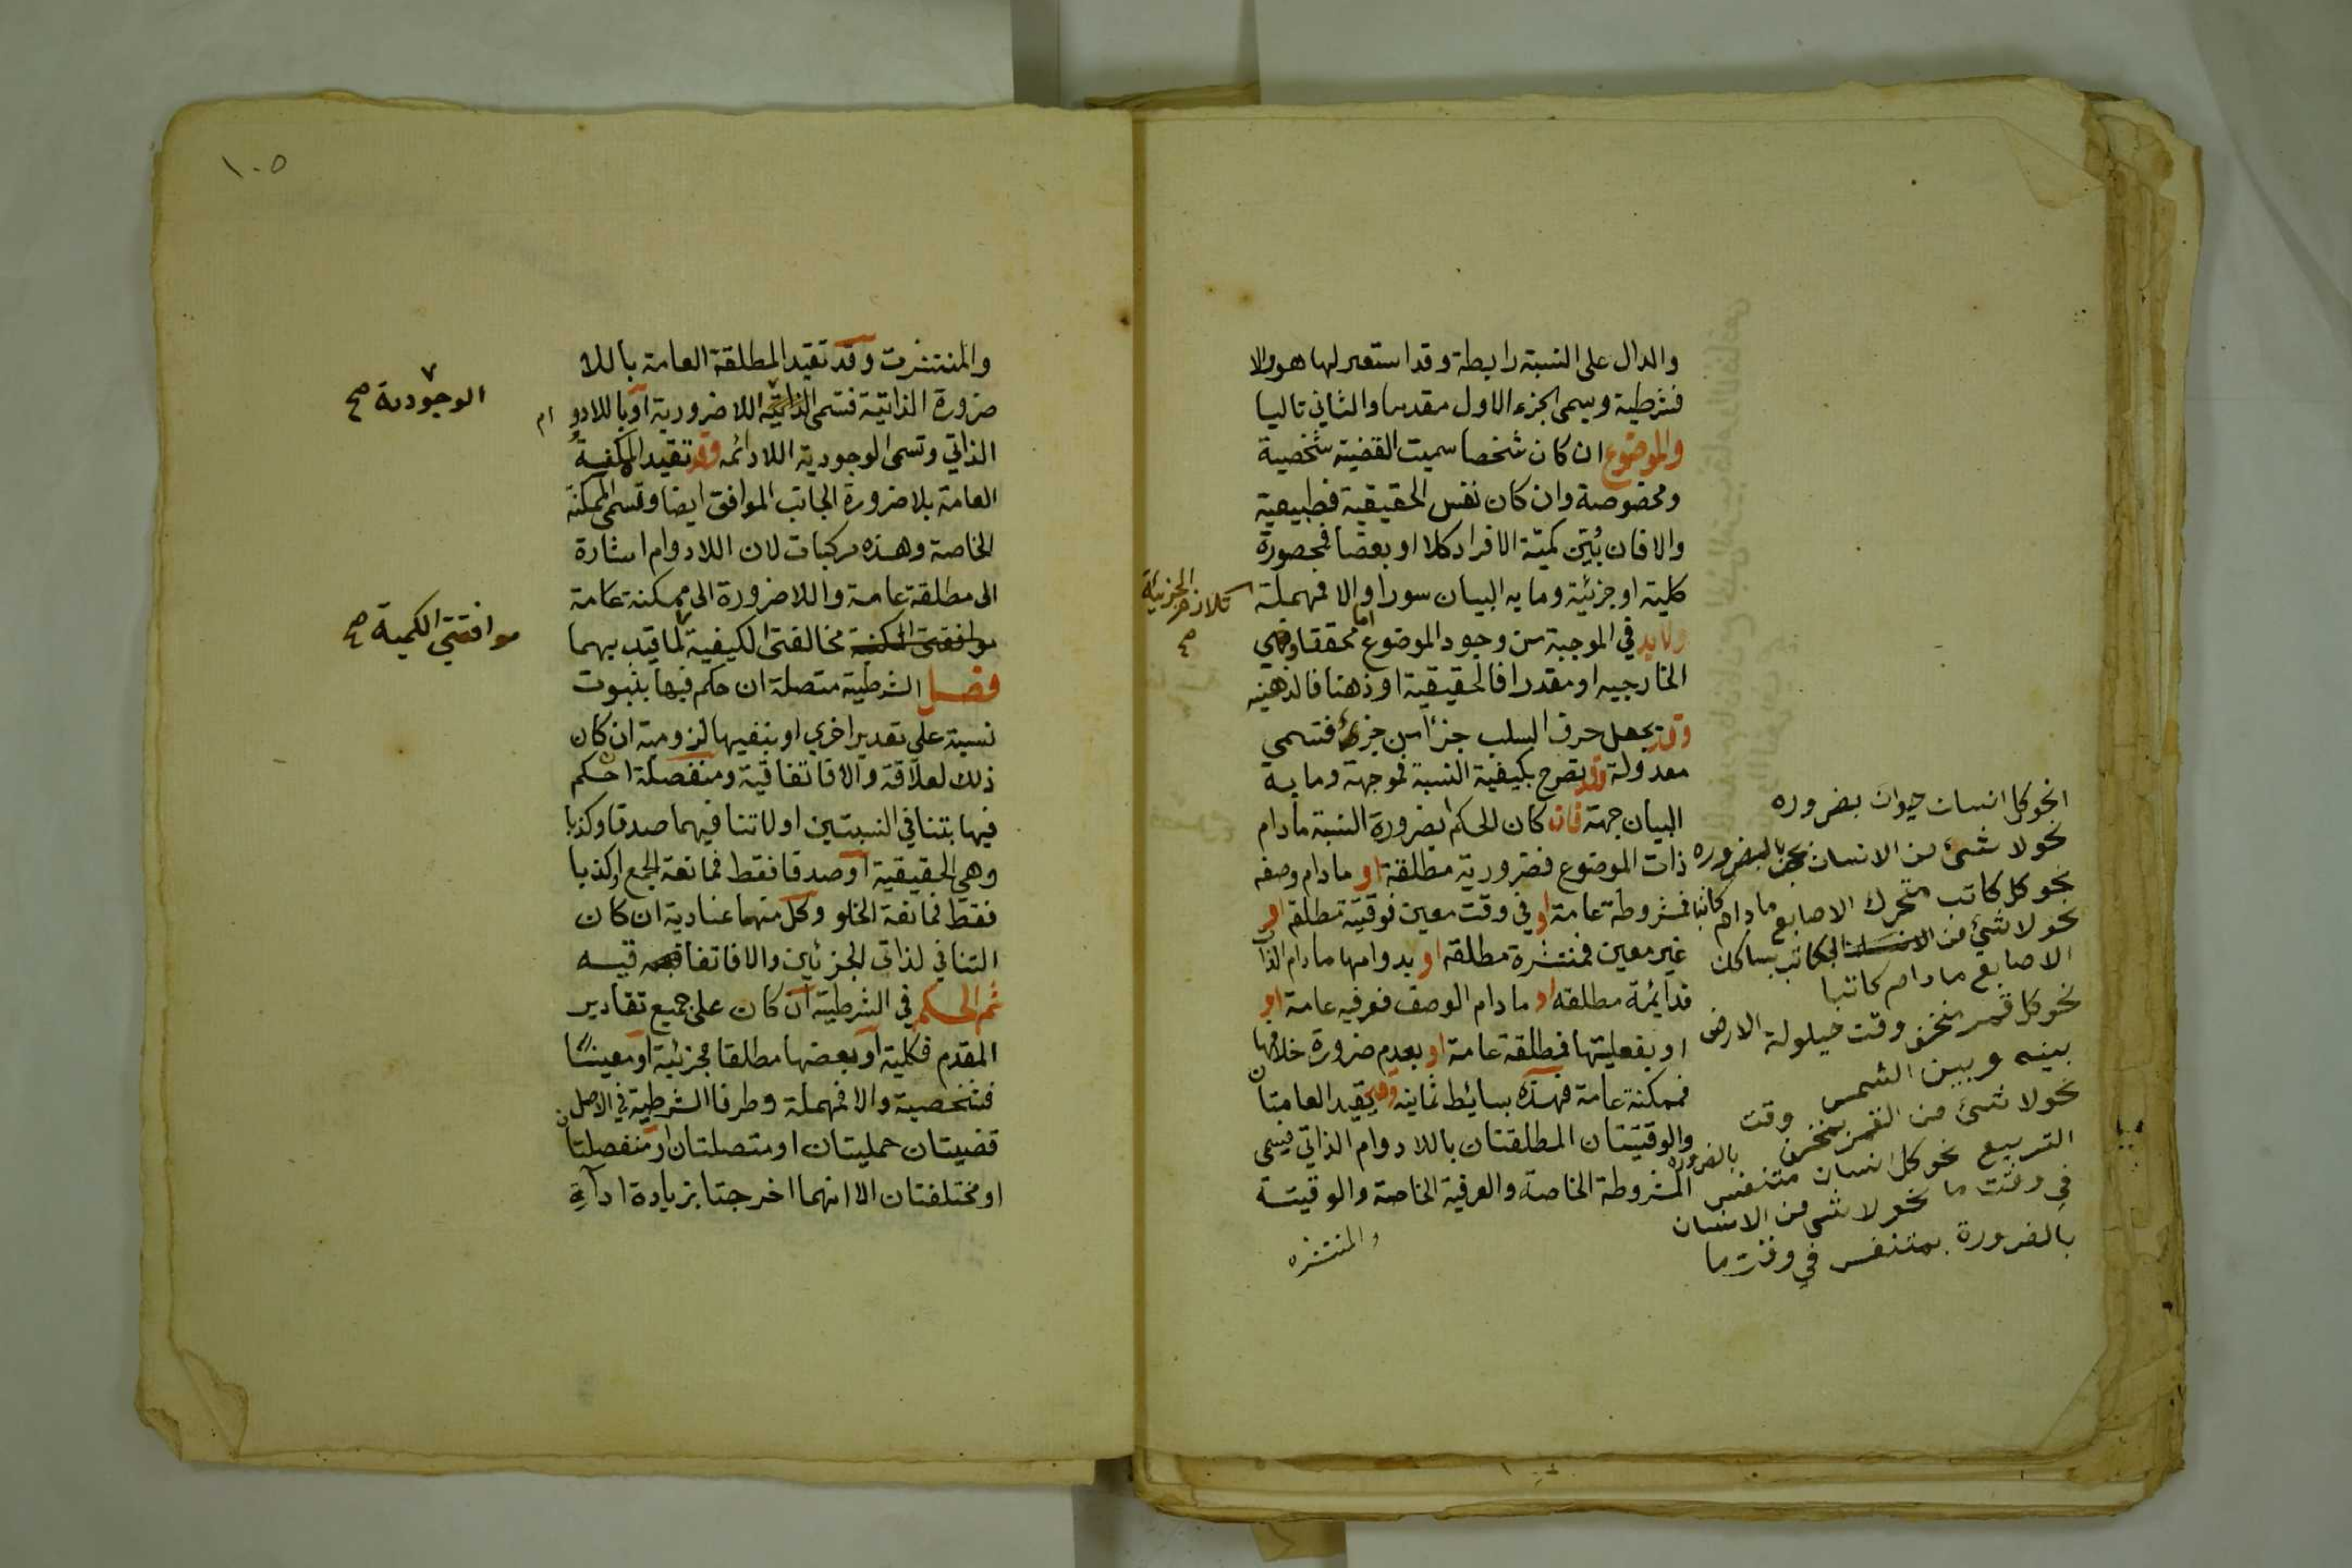 والدال على النسبة رابطة وقد استعير لها هو والا
فشرطية ويسمى الجزء الاول مقدما والثاني تاليا
والموضوع ان كان شخصا سميت القضية شخصية
ومخصوصة وان كان نفس الحقيقية فطبيعية
والا فان بُيّن كميّة الافراد كلا او بعضا فمحصورة
كلية او جزئية وما به البيان سورا والا فمهملة
ولا بد في الموجبة من وجود الموضوع اما محققا وهي
الخارجيه او مقدرا فالحقيقية او ذهنا فالذهنيه
وقد يجعل حرف السلب جزأ من جزئ فتسمى
معدولة وقد يصرح بكيفية النسبة فموجهة وما به
البيان جهة فان كان الحكم بضرورة النسبة مادام
ذات الموضوع فضرورية مطلقة او مادام وصفه
فمشروطة عامة او في وقت معين فوقتية مطلقة او
غير معين فمنتشرة مطلقة او بدوامها مادام الذا
فدايمة مطلقه او مادام الوصف فعرفيه عامة او
او بفعليتها فمطلقة عامة او بعدم ضرورة خلافها
فممكنة عامة فهذه بسائط ثمانيه وقد يقيد العامتان
والوقتيتان المطلقتان باللادوام الذاتي فيسمى
المشروطة الخاصة والعرفية الخاصة والوقتية
والمنتشره
تلازم الجزئية
صح
نحو كل انسان حيوان بضروره
نحو لا شئ من الانسان بحجر بالضروره
نحو كل كاتب متحرك الاصابع مادام كاتبا
نحو لا شئ من الكاتب بساكن
الاصابع مادام كاتبا
نحو كل قمر منخسف وقت حيلولة الارض
بينه وبين الشمس
نحو لا شئ من القمر بمنخسف وقت
التربيع نحو كل انسان متنفس بالضرورة
في وقت ما نحو لا شئ من الانسان
بالضرورة بمتنفس في وقت ما
١٠٥
والمنتشرت وقد تقيد المطلقة العامة باللا
ضرورة الذاتية فتسمى اللاضرورية او باللادو ام
الذاتي وتسمى الوجودية اللادائمه وقد تقيد الممكنة
العامة بلا ضرورة الجانب الموافق ايضا وتسمى الممكنة
الخاصة وهذه مركبات لان اللادوام اشارة
الى مطلقة عامة واللاضرورة الى ممكنة عامة
مخالفتى الكيفية لما قيد بهما
فصل الشرطية متصلة ان حكم فيها بثبوت
نسبة على تقدير اخرى او بنفيها لزومية ان كان
ذلك لعلاقة والا فاتفاقية ومنفصلة ان حكم
فيها بتنافي النسبتين او لا تنافيهما صدقا وكذبا
وهى الحقيقية او صدقا فقط فمانعة الجمع او كذبا
فقط فمانعة الخلو وكل منهما عنادية ان كان
التنافي لذاتى الجزئين والا فاتفاقيه
ثم الحكم في الشرطية ان كان على جميع تقادير
المقدم فكلية او بعضها مطلقا فجزئية او معينا
فشخصية والا فمهملة وطرفا الشرطية في الاصل
قضيتان حمليتان او متصلتان او منفصلتان
او مختلفتان الا انهما اخرجتا بزيادة اداة
الوجودية صح
موافقتي الكمية صح